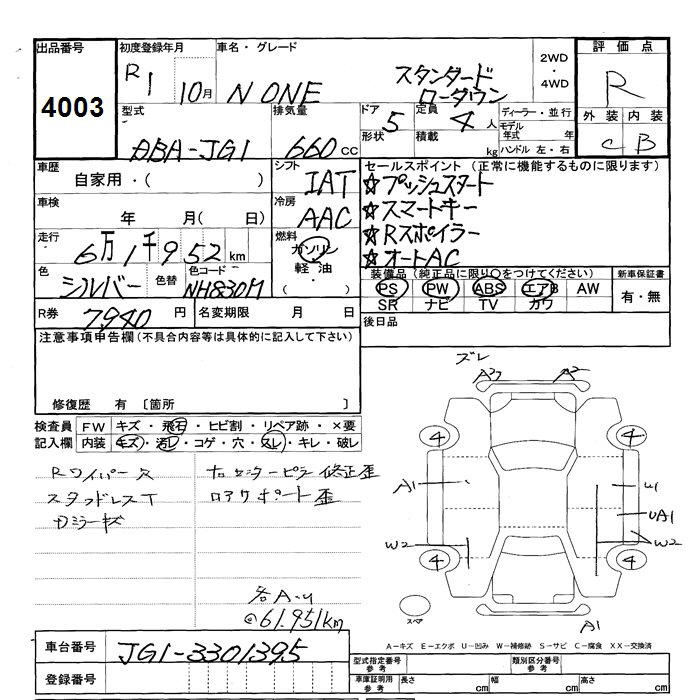 出品番号
4003
初度登録年月
R1 10月
車名・グレード
N ONE
スタンダード
ローダウン
2WD
・
4WD
評価点
R
外装 内装
C B
型式
DBA-JG1
排気量
660cc
ドア 5
形状
定員 4人
積載 kg
ディーラー・並行
モデル
年式 年
ハンドル 左・右
車歴
自家用・( )
シフト
IAT
セールスポイント(正常に機能するものに限ります)
☆プッシュスタート
☆スマートキー
☆Rスポイラー
☆オートAC
車検
年 月( 日)
冷房
AAC
走行
6万1千952km
燃料
ガソリン
軽油・
( )
色
シルバー
色替
色コード
NH830M
装備品(純正品に限り〇をつけてください)
PS PW ABS エアB AW
SR ナビ TV カワ
新車保証書
有・無
R券 7,940円
名変期限 月 日
後日品
注意事項申告欄(不具合内容等は具体的に記入して下さい)
修復歴 有 〔箇所 〕
検査員
記入欄
FW キズ・飛石・ヒビ割・リペア跡・×要
内装 キズ・汚レ・コゲ・穴・スレ・キレ・破レ
Rワイパー欠
スタッドレスT
カミラーキズ
右センターピラー修正歪
ロアサポート歪
各A-u
@61,951km
ズレ
A3 A2
4 4
A1 U1
UA1
W2 W2
4 4
スペア
A1
A-キズ E-エクボ U-凹み W-補修跡 S-サビ C-腐食 XX-交換済
車台番号
JG1-3301395
登録番号
型式指定番号
参考
類別区分番号
参考
車庫証明用
参考
長さ cm 幅 cm 高さ cm